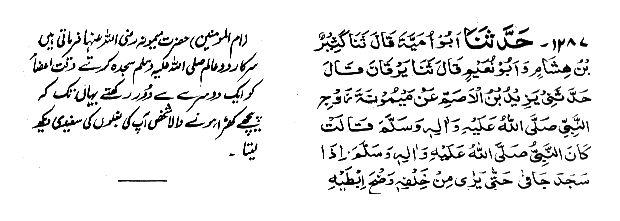 ۱۲۸۷- حَدَّثَنَا اَبُوْ اُمَيَّةَ قَالَ ثَنَا كَثِيْرُ
بْنُ هِشَامٍ وَاَبُوْ نُعَيْمٍ قَالَ ثَنَا بَرْقَانُ قَالَ
حَدَّثَنِيْ يَزِيْدُ بْنُ الْاَصَمِّ عَنْ مَيْمُوْنَةَ زَوْجِ
النَّبِيِّ صَلَّى اللهُ عَلَيْهِ وَاٰلِهٖ وَسَلَّمَ قَالَتْ
كَانَ النَّبِيُّ صَلَّى اللهُ عَلَيْهِ وَاٰلِهٖ وَسَلَّمَ اِذَا
سَجَدَ جَافٰى حَتّٰى يَرٰى مِنْ خَلْفِهٖ وَضَحَ اِبْطَيْهِ
(ام المومنین) حضرت میمونہ رضی اللہ عنہا فرماتی ہیں
سرکار دوعالم صلی اللہ علیہ وسلم سجدہ کرتے وقت اعضاء
کو ایک دوسرے سے دور رکھتے یہاں تک کہ
پیچھے کھڑا ہونے والا شخص آپ کی بغلوں کی سفیدی دیکھ
لیتا۔